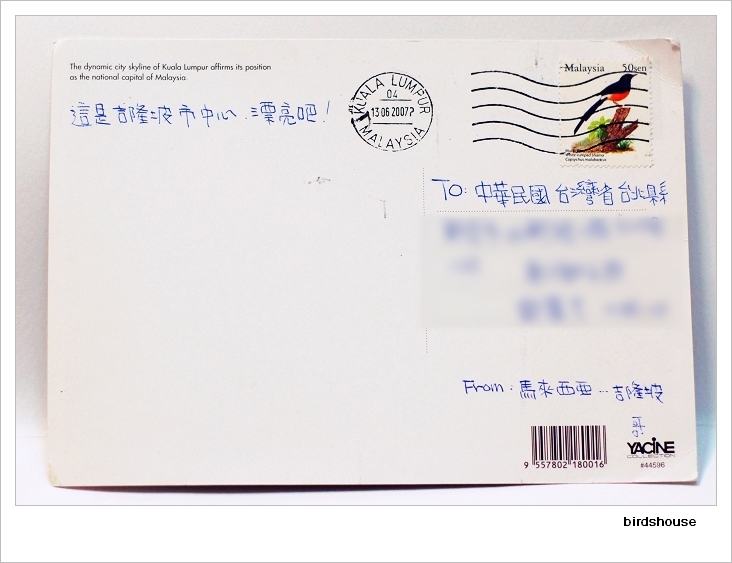 The dynamic city skyline of Kuala Lumpur affirms its position
as the national capital of Malaysia.
這是吉隆坡市中心.漂亮吧!
KUALA LUMPUR
04
13 06 2007?
MALAYSIA
Malaysia 50sen
White-rumped Shama
Copsychus malabaricus
TO: 中華民國 台灣省台北縣
From: 馬來西亞…吉隆坡
哥
9 557802 180016
YACINE
COLLECTION
#44596
birdshouse